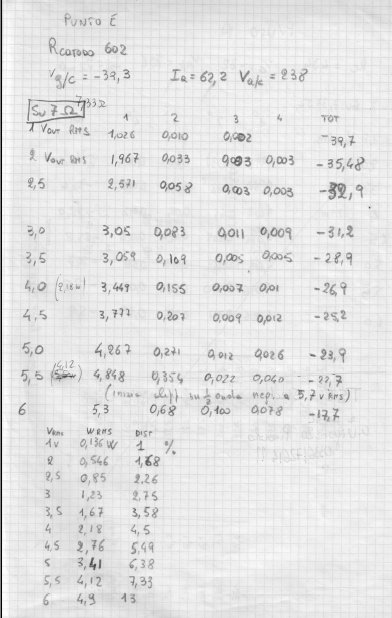 PUNTO E
RCATODO 602
Vg/c = -39,3 Ia = 62,2 Va/c = 238
Su 7 Ω 7,33Ω
1 2 3 4 TOT
1 VOUT RMS 1,026 0,010 0,002 -39,7
2 VOUT RMS 1,967 0,033 0,003 0,003 -35,48
2,5 2,571 0,058 0,003 0,003 -32,9
3,0 3,05 0,083 0,011 0,009 -31,2
3,5 3,059 0,109 0,005 0,005 -28,9
4,0 (2,18W) 3,449 0,155 0,007 0,01 -26,9
4,5 3,777 0,207 0,009 0,012 -25,2
5,0 4,267 0,271 0,012 0,026 -23,9
5,5 (4,12 W) 4,848 0,354 0,022 0,040 -22,7
(inizia clipp su ½ onda neg. a 5,7 V RMS)
6 5,3 0,68 0,100 0,078 -17,7
VRMS WRMS DIST
1V 0,136 W 1 %
2 0,546 1,68
2,5 0,85 2,26
3 1,23 2,75
3,5 1,67 3,58
4 2,18 4,5
4,5 2,76 5,49
5 3,41 6,38
5,5 4,12 7,33
6 4,9 13